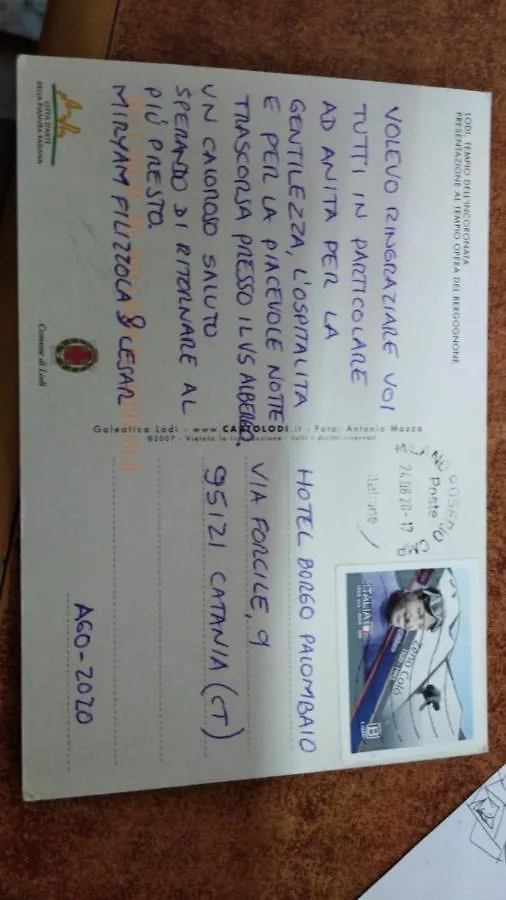 LODI, TEMPIO DELL'INCORONATA
PRESENTAZIONE AL TEMPIO OPERA DEL BERGOGNONE
VOLEVO RINGRAZIARE VOI
TUTTI IN PARTICOLARE
AD ANITA PER LA
GENTILEZZA, L'OSPITALITA
E PER LA PIACEVOLE NOTTE
TRASCORSA PRESSO IL VS ALBERGO,
UN CALOROSO SALUTO
SPERANDO DI RITORNARE AL
PIÙ PRESTO.
MIRYAM FILIZZOLA & CESAR
CITTÀ D'ARTE
DELLA PIANURA PADANA
Comune di Lodi
Galeatica Lodi - www.CARTOLODI.it - Foto: Antonio Mazza
©2007 - Vietata la riproduzione - tutti i diritti riservati
MILANO
Poste
24.08.20-17
italiane
ITALIA
Zeno Colò
HOTEL BORGO PALOMBAIO
VIA FORCILE, 9
95121 CATANIA (CT)
AGO-2020